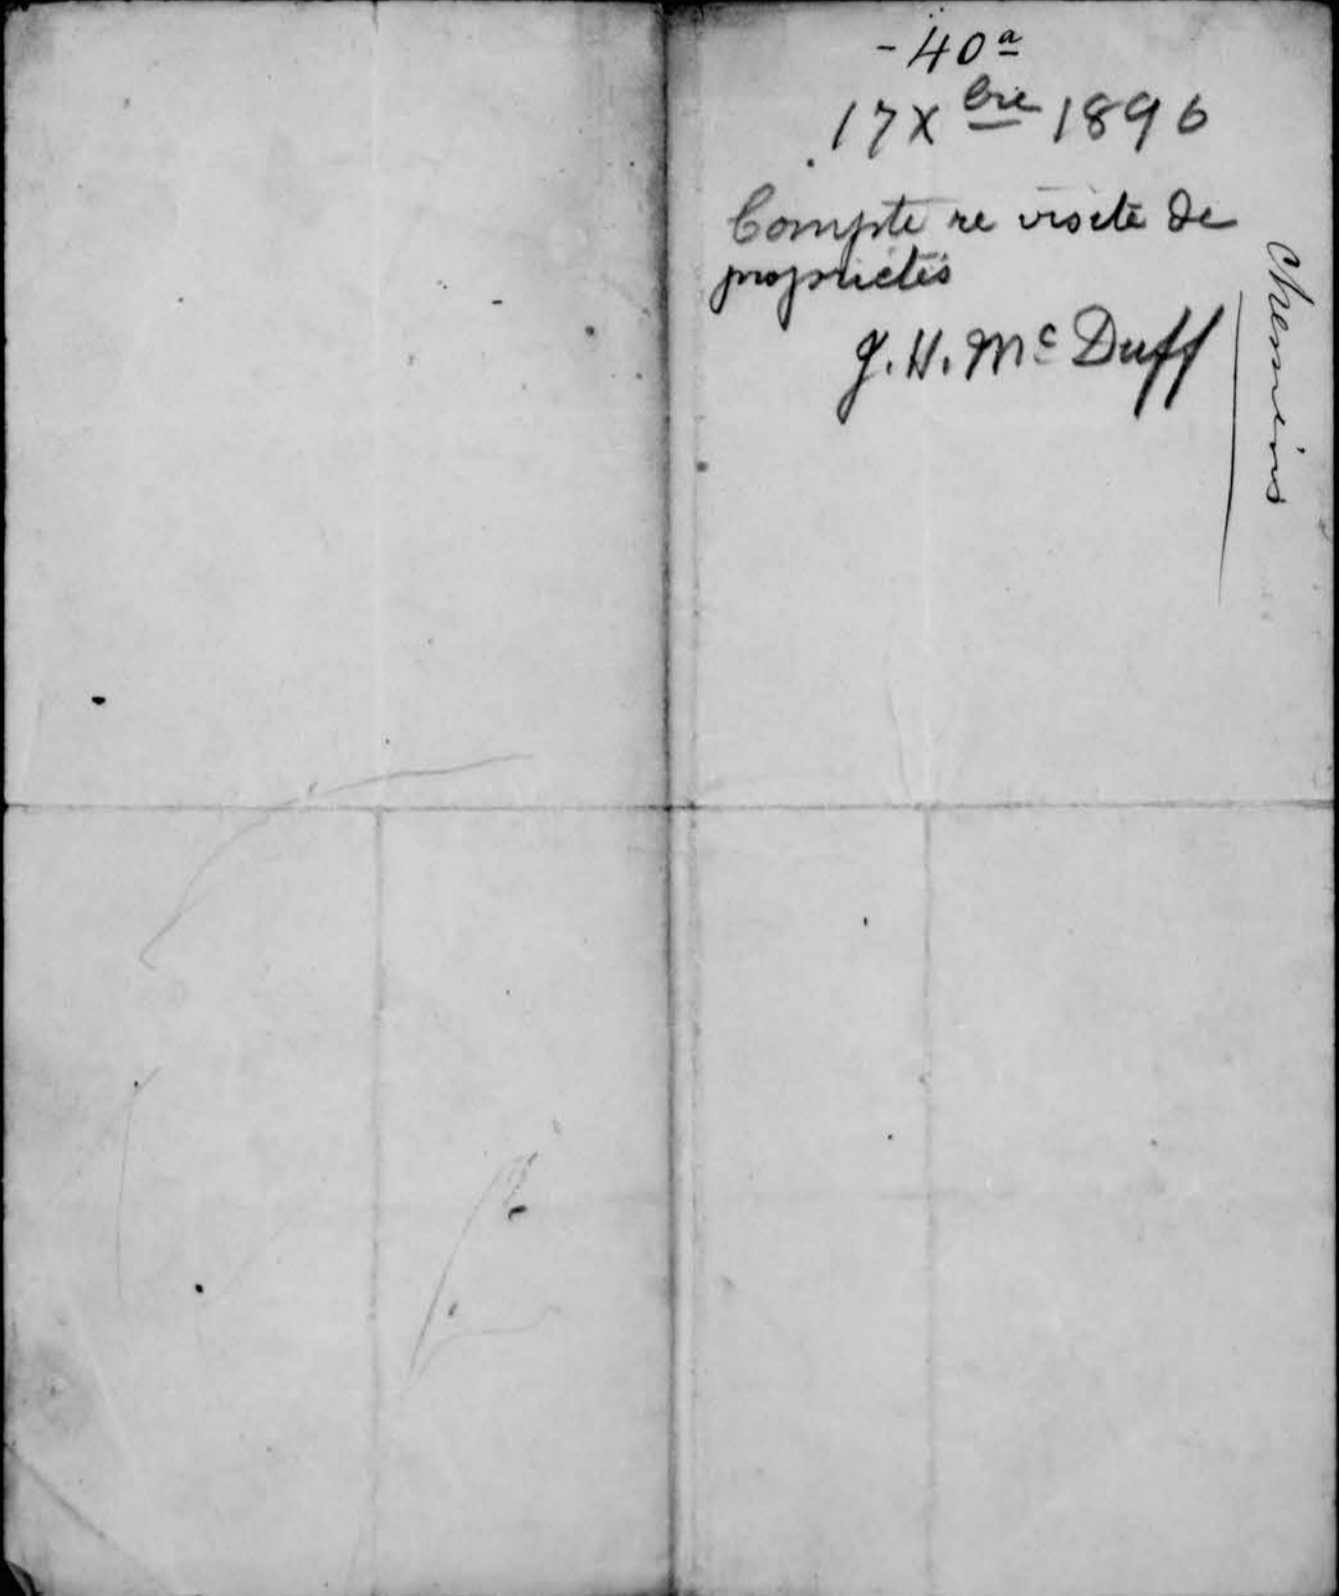 - 40ª
17 Xbre 1896
Compte re visite de
propriétés
J. H. Mc Duff
Chemins